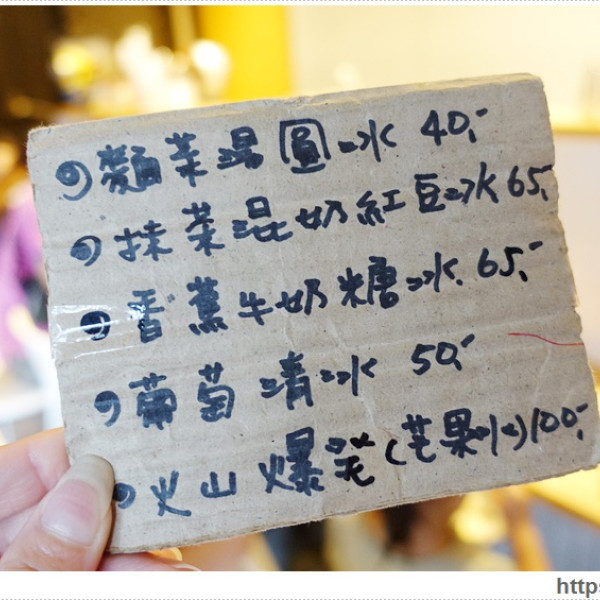 麵茶湯圓冰 40.-
抹茶混奶紅豆冰 65.-
香蕉牛奶糖冰. 65.-
葡萄清冰 50.-
火山爆笑(芒果冰)100.-
https